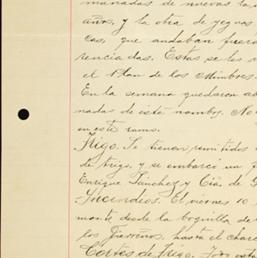 manadas de nuevas la
años, y la obra de yeguas
cas, que andaban fuera
renciadas. Estas se les
el Plan de los Mimbres
En la semana quedaron
nada de este nombre. No
en este ramo.
Trigo. Se tienen remitidos
de trigo, y se embarcó un
Enrique Sánchez y Cía. de G
Incendios. El viernes 10
monte desde la boquilla de
los Fierreños, hasta el charc
Cortes de Trigo. Por esta